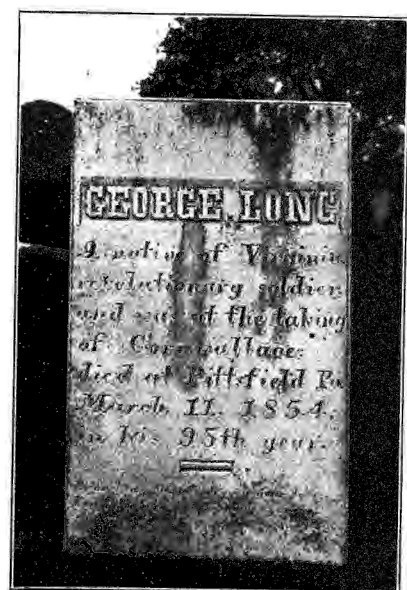 GEORGE LONG
A native of Virginia,
revolutionary soldier,
and was at the taking
of Cornwallace:
died at Pittsfield Pa.
March 11. 1854,
in his 95th year.